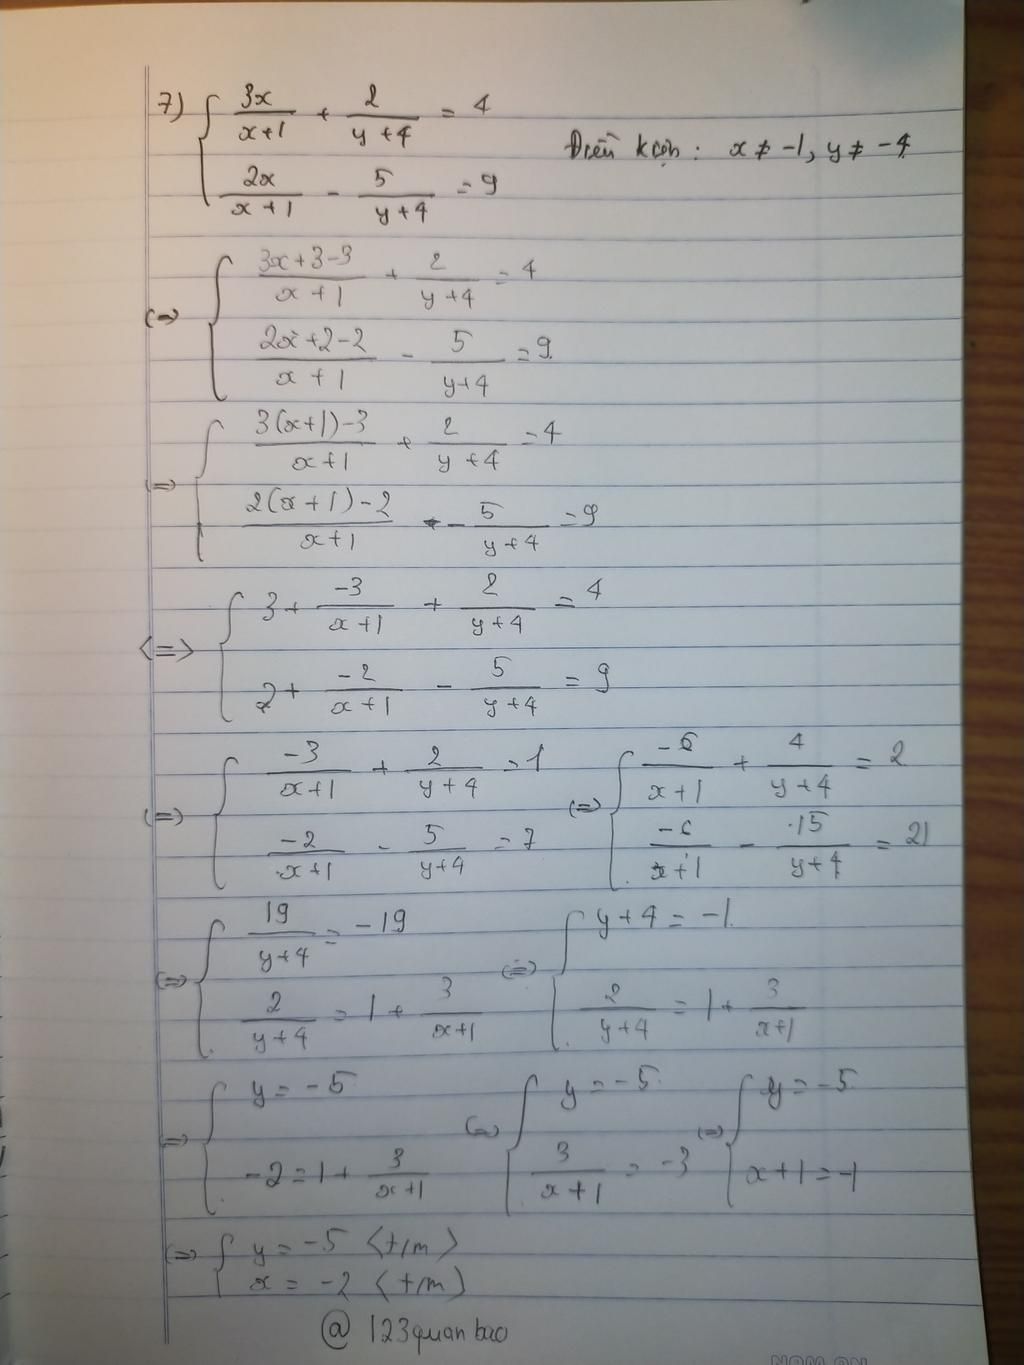 7) { 3x/(x+1) + 2/(y+4) = 4
2x/(x+1) - 5/(y+4) = 9
Điều kiện: x ≠ -1, y ≠ -4
(=) { (3x+3-3)/(x+1) + 2/(y+4) = 4
(2x+2-2)/(x+1) - 5/(y+4) = 9
(=) { (3(x+1)-3)/(x+1) + 2/(y+4) = 4
(2(x+1)-2)/(x+1) - 5/(y+4) = 9
<=> { 3 + -3/(x+1) + 2/(y+4) = 4
2 + -2/(x+1) - 5/(y+4) = 9
(=) { -3/(x+1) + 2/(y+4) = 1
-2/(x+1) - 5/(y+4) = 7
(=) { -6/(x+1) + 4/(y+4) = 2
-6/(x+1) - 15/(y+4) = 21
(=) { 19/(y+4) = -19
2/(y+4) = 1 + 3/(x+1)
(=) { y+4 = -1
2/(y+4) = 1 + 3/(x+1)
(=) { y = -5
-2 = 1 + 3/(x+1)
(=) { y = -5
3/(x+1) = -3
(=) { y = -5
x+1 = -1
(=) { y = -5 (t/m)
x = -2 (t/m)
@ 123quanbao